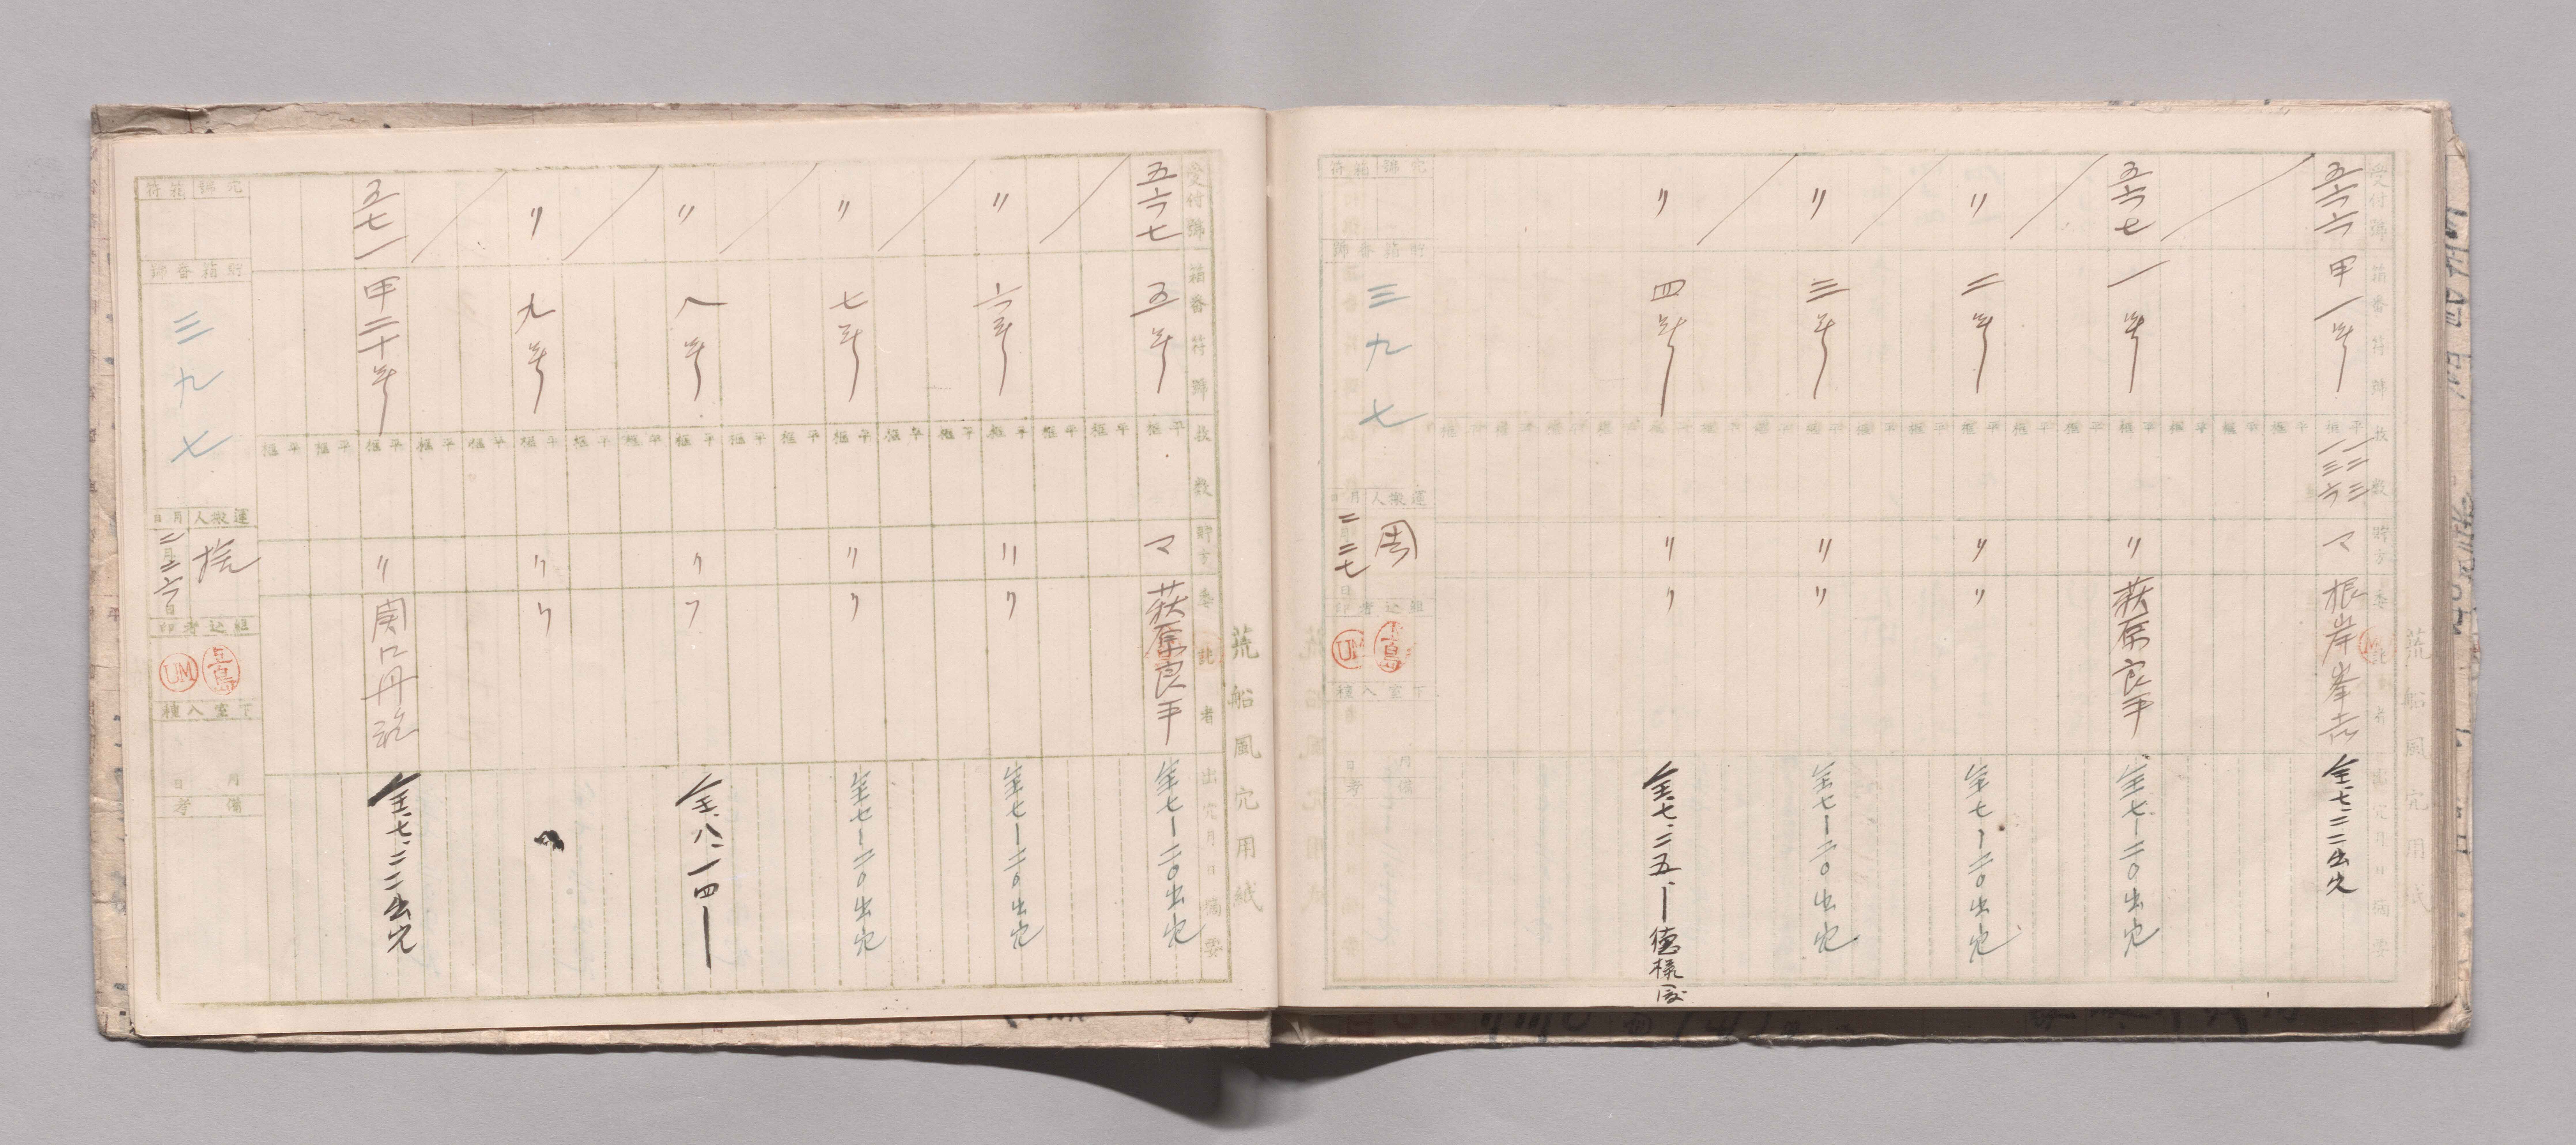 荒船風穴用紙
受付號
箱番符號
枚数
貯方
委託者
出穴月日摘要
五六六
甲一号
平 二三
框 一三六
マ
根岸峯吉
全七、二二出穴
五六七
一号
〃
萩原良平
全七ー二〇出穴
〃
二号
〃
〃
全七ー二〇出穴
〃
三号
〃
〃
全七ー二〇出穴
〃
四号
〃
〃
全七、二五、ー
穴號
箱符
貯箱番號
三九七
運搬人
周
月日
二 二七
組込者印
上島
UM
下室入種
月日
備考
荒船風穴用紙
受付號
箱番符號
枚数
貯方
委託者
出穴月日摘要
五六七
五号
マ
萩原良平
全七ー二〇出穴
〃
六号
〃
〃
全七ー二〇出穴
〃
七号
〃
〃
全七ー二〇出穴
〃
八号
〃
〃
全、八、一四ー
〃
九号
〃
〃
五七一
甲二十号
〃
全、七、二二出穴
穴號
箱符
貯箱番號
三九七
運搬人
捨
月日
二月二六日
組込者印
上島
UM
下室入種
月日
備考